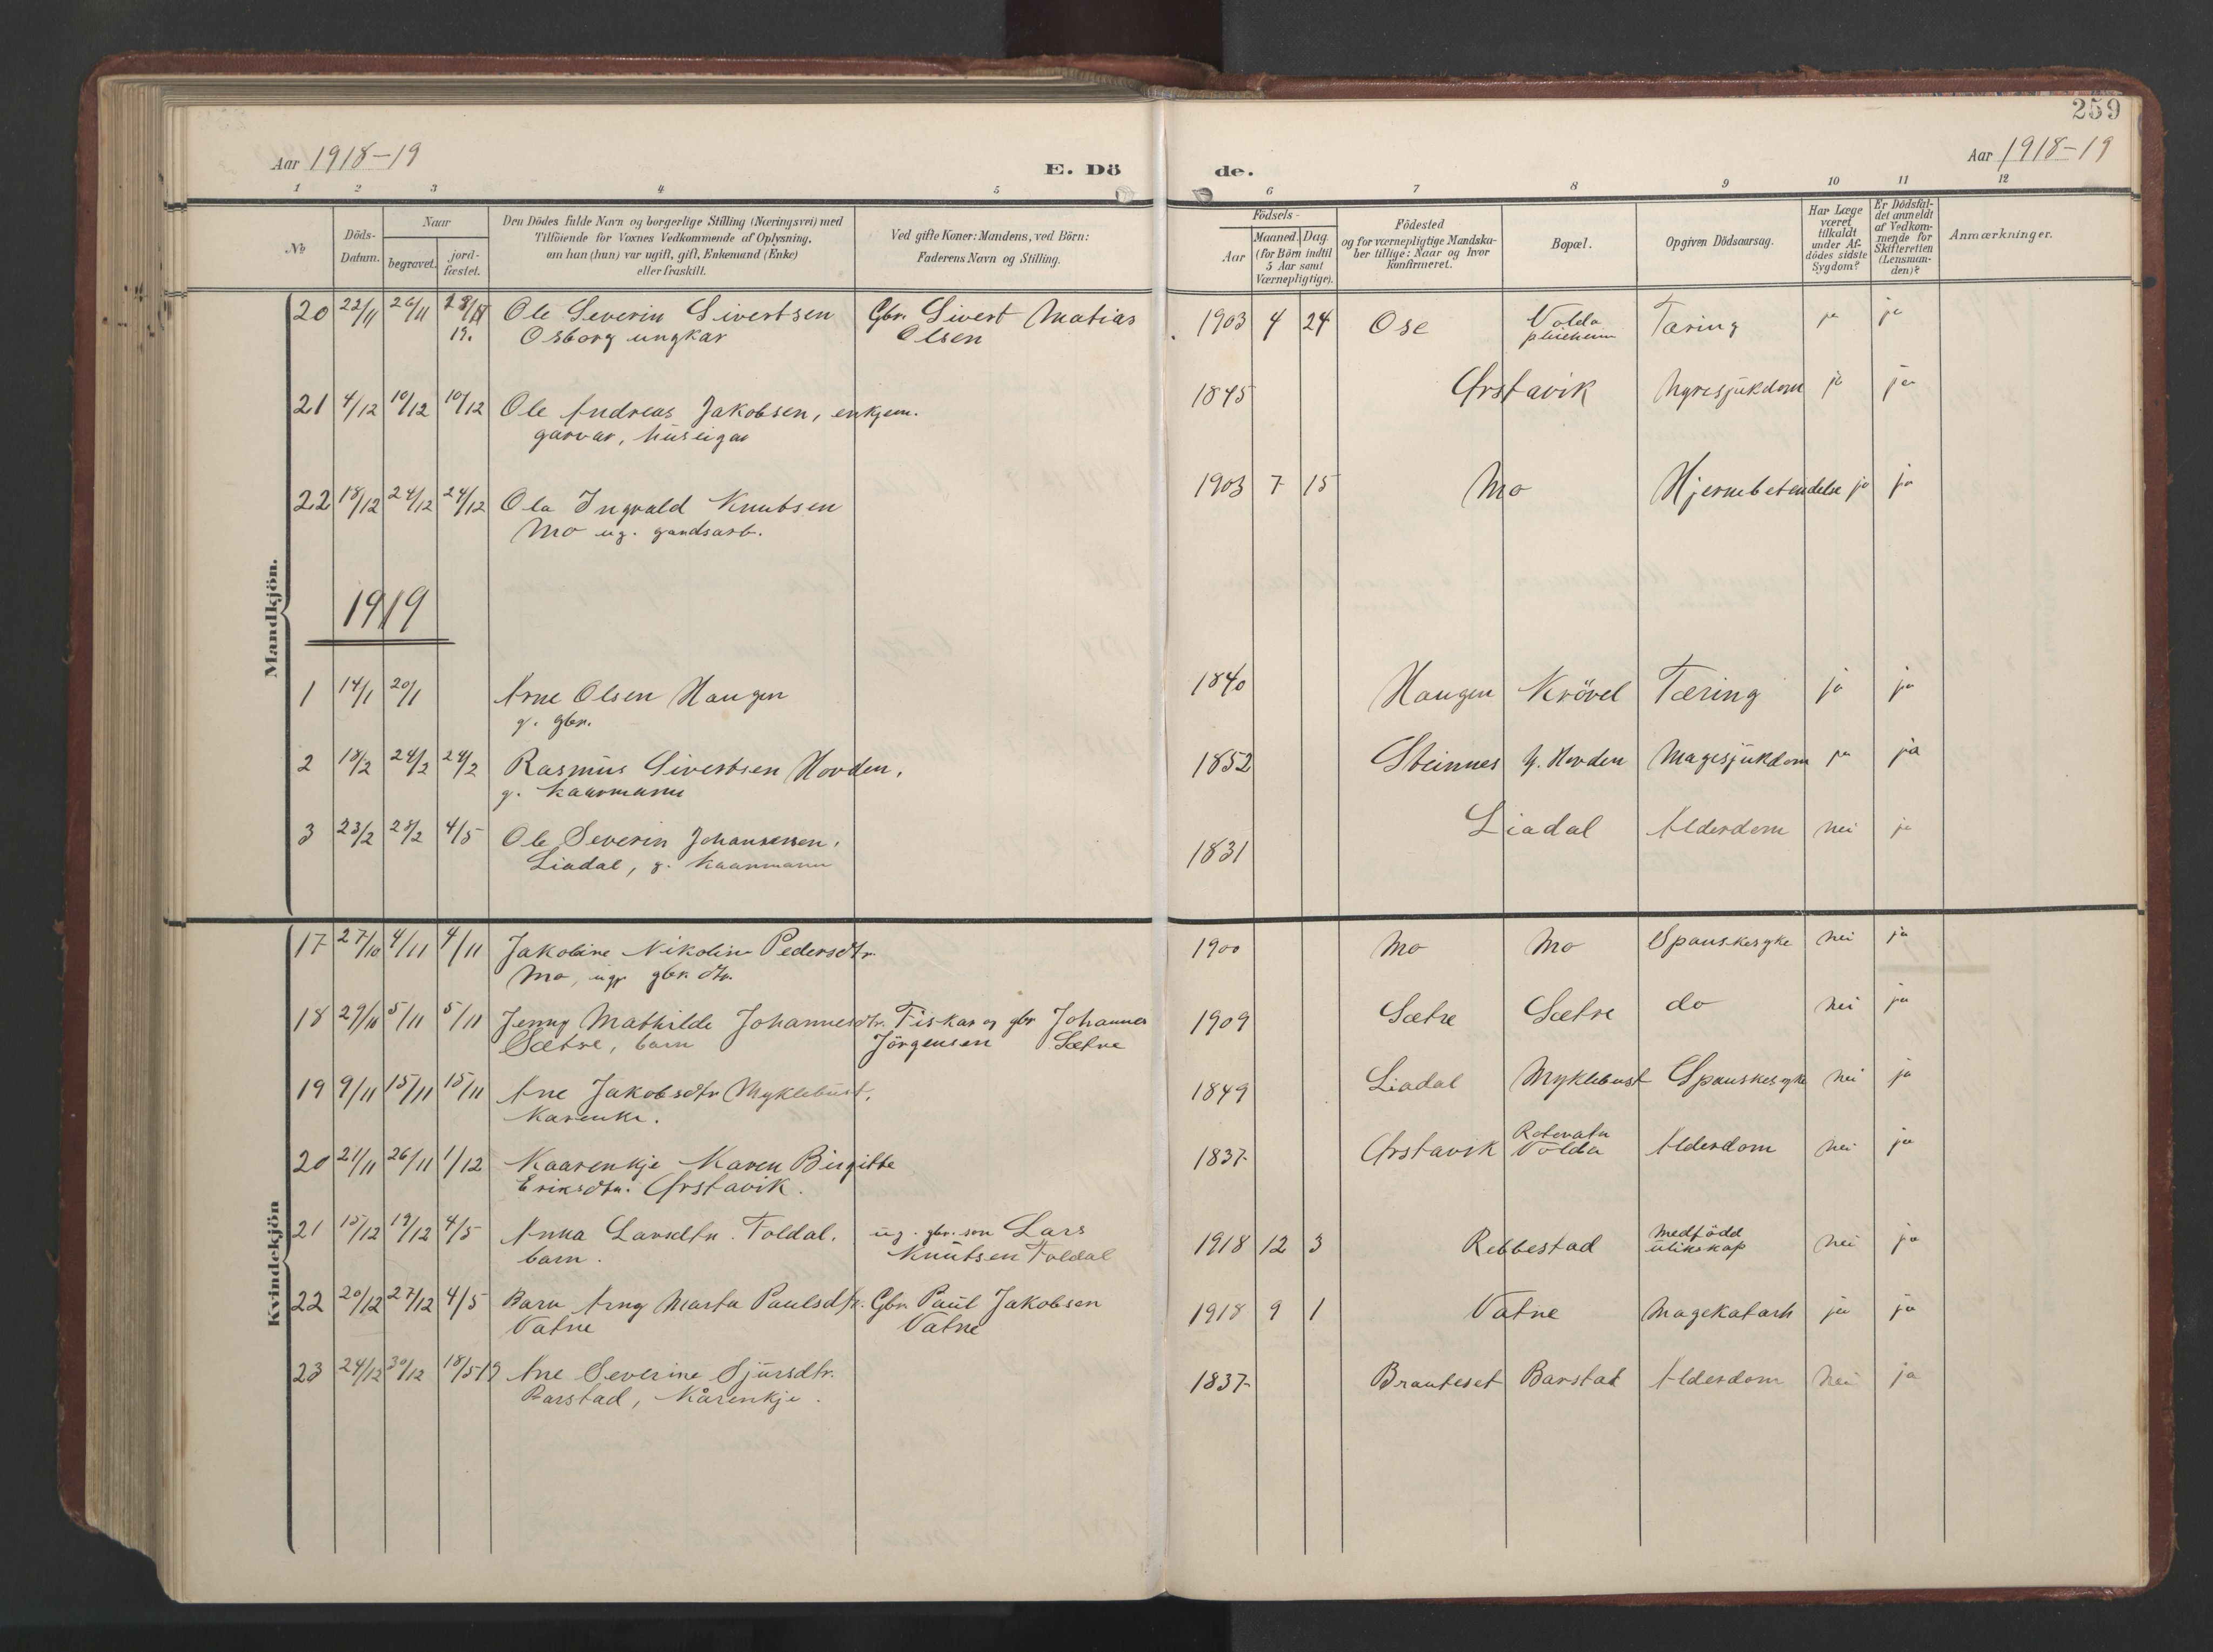 259
Aar 1918-19
E. Dö
de.
Aar 1918-19
1 2 3 4 5 6 7 8 9 10 11 12
No
Döds-
Datum.
Naar
begravet.
jord-
fæstet.
Den Dödes fulde Navn og borgerlige Stilling (Næringsvei) med
Tilföiende for Voxnes Vedkommende af Oplysning,
om han (hun) var ugift, gift, Enkemand (Enke)
eller fraskilt.
Ved gifte Koner: Mandens, ved Börn:
Faderens Navn og Stilling.
Födsels-
Aar
Maaned. Dag.
(for Börn indtil
5 Aar samt
Værnepligtige).
Födested
og for værnepligtige Mandska-
ber tillige: Naar og hvor
konfirmeret.
Bopæl.
Opgiven Dödsaarsag.
Har Læge
været
tilkaldt
under Af-
dödes sidste
Sygdom?
Er Dödsfal-
det anmeldt
af Vedkom-
mende for
Skifteretten
(Lensman-
den)?
Anmærkninger.
Mandkjön.
20 22/11 26/11 Ole Severin Sivertsen Gbr. Sivert Matias 1903 4 24 Ose Volda Tæring ja ja
19. Osborg ungkar Olsen pleieheim
21 4/12 10/12 10/12 Ole Andreas Jakobsen, enkjem. 1845 Ørstavik Nyresjukdom ja ja
garvar, huseigar
22 18/12 24/12 24/12 Ola Ingvald Knutsen 1903 7 15 Mo Hjernebetendelse ja ja
Mo ug. gardsarb.
1919
1 14/1 20/1 Arne Olsen Haugen 1840 Haugen Krövel Tæring ja ja
g. gbr.
2 18/2 24/2 24/2 Rasmus Sivertsen Hovden, 1852 Steinnes Y. Hovden Magesjukdom ja ja
g. kaarmann
3 23/2 28/2 4/5 Ole Severin Johansen, 1831 Liadal Alderdom nei ja
Liadal, g. kaarmann
Kvindekjön
17 27/10 4/11 4/11 Jakobine Nikoline Pedersdtr. 1900 Mo Mo Spanskesyke nei ja
Mo, ug. gbr. dtr.
18 29/10 5/11 5/11 Jenny Mathilde Johannesdtr. Fiskar og gbr Johannes 1909 Sætre Sætre do nei ja
Sætre, barn Jörgensen Sætre
19 9/11 15/11 15/11 Ane Jakobsdtr Myklebust, 1849 Liadal Myklebust Spanskesyke nei ja
20 21/11 26/11 1/12 Kaarenkje Karen Birgitte 1837 Ørstavik Rotevatn Volda Alderdom nei ja
Eriksdtr. Ørstavik.
21 15/12 19/12 4/5 Anna Larsdtr. Foldal. ug. gbr. son Lars 1918 12 3 Rebbestad medfödd ulikskap nei ja
barn. Knutsen Foldal
22 20/12 27/12 4/5 Barn Arny Marta Paulsdtr. Gbr. Paul Jakobsen 1918 9 1 Vatne Magekatarh ja ja
Vatne Vatne
23 24/12 30/12 18/5 19 Ane Severine Sjursdtr. 1837 Brauteset Barstad Alderdom nei ja
Barstad, Kårenkje.